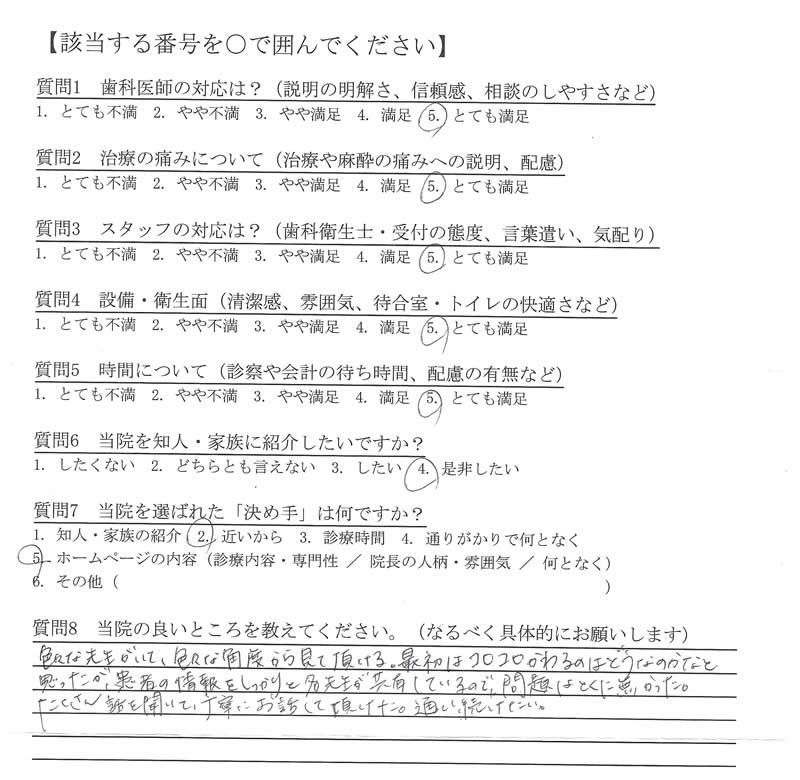 【該当する番号を○で囲んでください】
質問1　歯科医師の対応は？（説明の明解さ、信頼感、相談のしやすさなど）
1. とても不満　2. やや不満　3. やや満足　4. 満足　5. とても満足
質問2　治療の痛みについて（治療や麻酔の痛みへの説明、配慮）
1. とても不満　2. やや不満　3. やや満足　4. 満足　5. とても満足
質問3　スタッフの対応は？（歯科衛生士・受付の態度、言葉遣い、気配り）
1. とても不満　2. やや不満　3. やや満足　4. 満足　5. とても満足
質問4　設備・衛生面（清潔感、雰囲気、待合室・トイレの快適さなど）
1. とても不満　2. やや不満　3. やや満足　4. 満足　5. とても満足
質問5　時間について（診察や会計の待ち時間、配慮の有無など）
1. とても不満　2. やや不満　3. やや満足　4. 満足　5. とても満足
質問6　当院を知人・家族に紹介したいですか？
1. したくない　2. どちらとも言えない　3. したい　4. 是非したい
質問7　当院を選ばれた「決め手」は何ですか？
1. 知人・家族の紹介　2. 近いから　3. 診療時間　4. 通りがかりで何となく
5. ホームページの内容（診療内容・専門性 ／ 院長の人柄・雰囲気 ／ 何となく）
6. その他（　　　　　　　　　　）
質問8　当院の良いところを教えてください。（なるべく具体的にお願いします）
色々な先生がいて、色々な角度から見て頂ける。最初はコロコロかわるのはどうなのかなと
思ったが、患者の情報をしっかりと各先生が共有しているので、問題はとくに無かった。
たくさん話を聞いて、丁寧にお話して頂けた。通い続けたい。